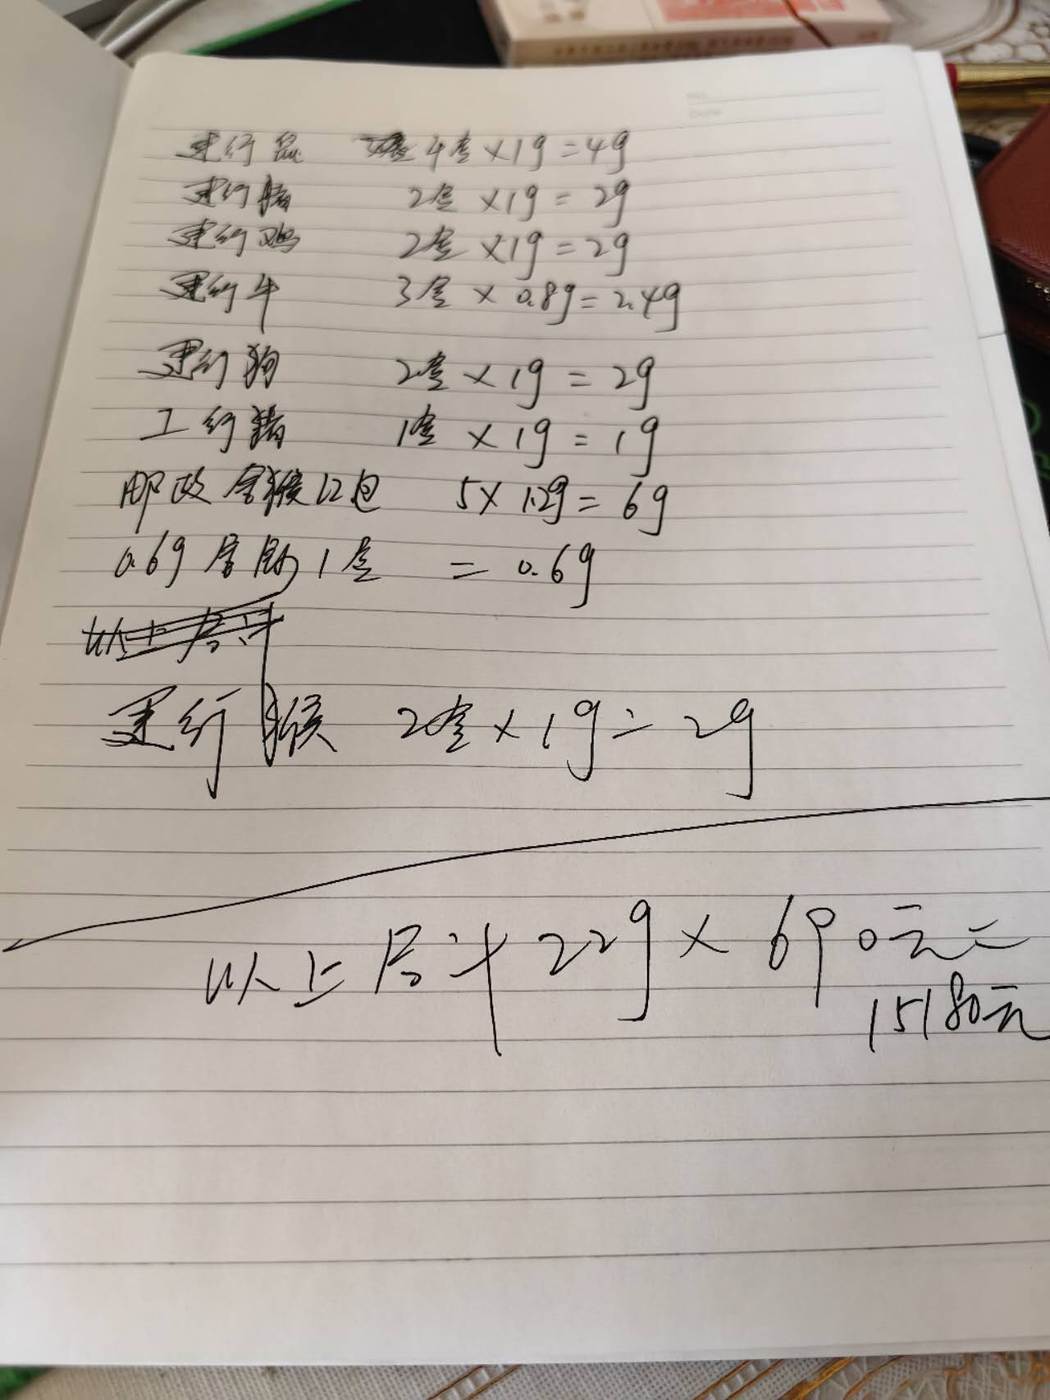 建行鼠 4盒×1g=4g
建行猪 2盒×1g=2g
建行鸡 2盒×1g=2g
建行牛 3盒×0.8g=2.4g
建行狗 2盒×1g=2g
工行猪 1盒×1g=1g
邮政金猴红包 5×1.2g=6g
0.6g 1盒 =0.6g
以上合计
建行猴 2盒×1g=2g
以上合计22g×690元=
15180元